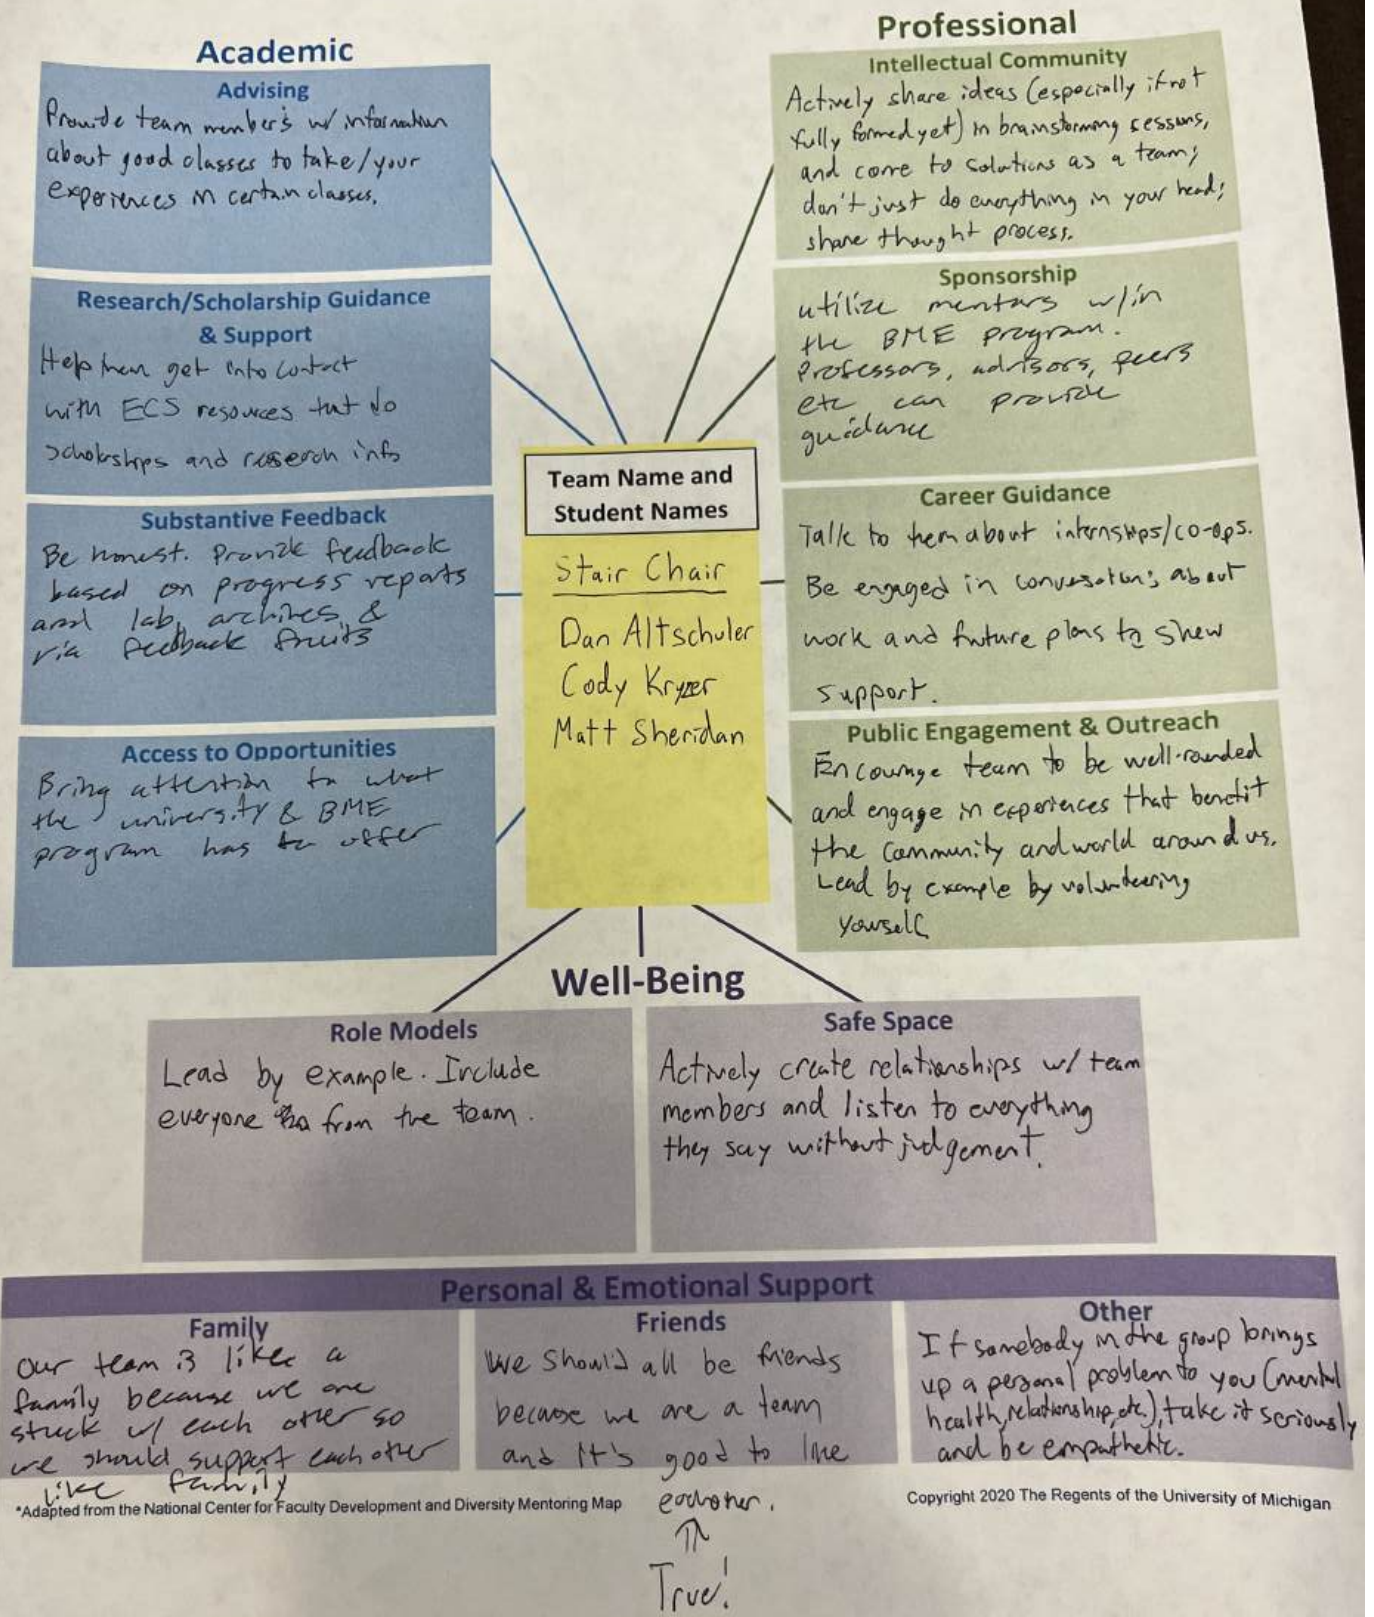 Academic
Advising
Provide team member's w/ information
about good classes to take/your
experiences in certain classes.
Research/Scholarship Guidance
& Support
Help them get into contact
with ECS resources that do
scholarships and reserch info
Substantive Feedback
Be honest. Provide feedback
based on progress reports
and lab archives &
via feedback fruits
Access to Opportunities
Bring attention to what
the university & BME
program has to offer
Professional
Intellectual Community
Actively share ideas (especially if not
fully formed yet) in brainstorming sessions,
and come to solutions as a team;
don't just do everything in your head;
share thought process.
Sponsorship
utilize mentors w/in
the BME program.
Professors, advisors, peers
etc can provide
guidance
Career Guidance
Talk to them about internships/co-ops.
Be engaged in conversations about
work and future plans to show
support.
Public Engagement & Outreach
Encourage team to be well-rounded
and engage in experiences that benefit
the community and world around us.
Lead by example by volunteering
yourself
Team Name and
Student Names
Stair Chair
Dan Altschuler
Cody Kryzer
Matt Sheridan
Well-Being
Role Models
Lead by example. Include
everyone from the team.
Safe Space
Actively create relationships w/ team
members and listen to everything
they say without judgement.
Personal & Emotional Support
Family
Our team is like a
family because we are
stuck w/ each other so
we should support each other
like family
Friends
We should all be friends
because we are a team
and it's good to like
eachother.
True!
Other
If somebody in the group brings
up a personal problem to you (mental
health, relationship, etc.), take it seriously
and be empathetic.
*Adapted from the National Center for Faculty Development and Diversity Mentoring Map
Copyright 2020 The Regents of the University of Michigan